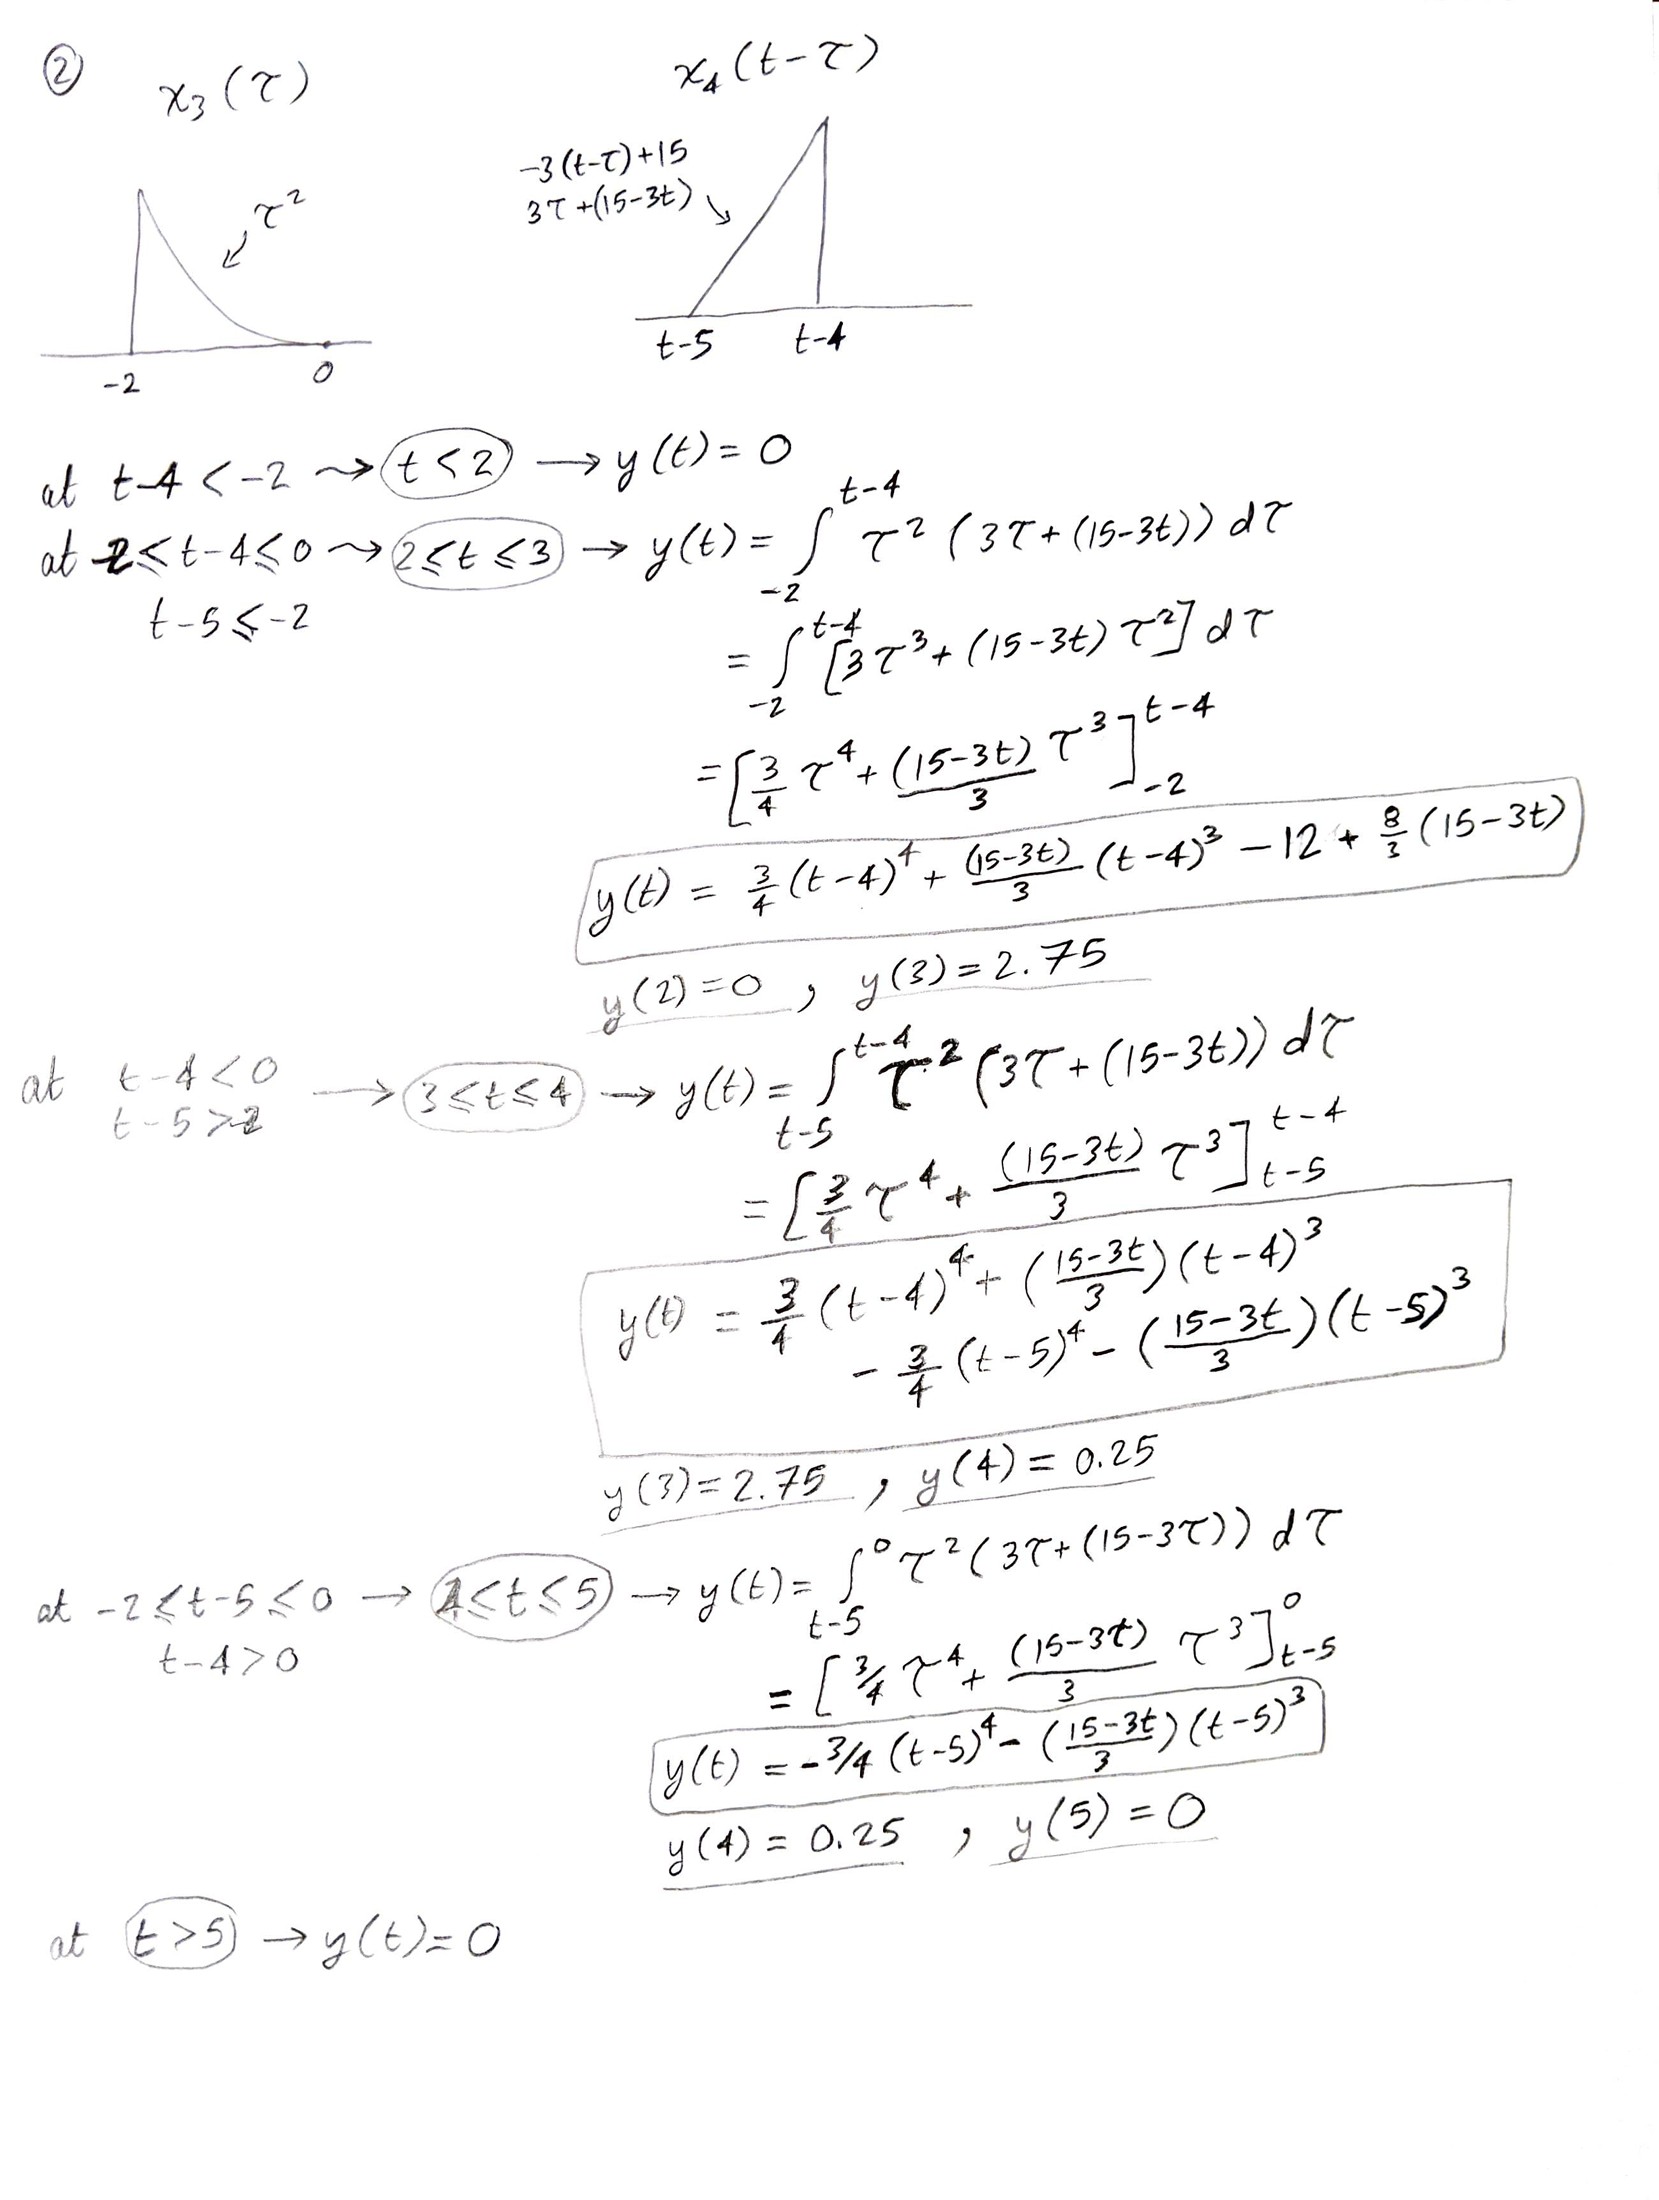 ②
x₃(τ)
x₄(t-τ)
τ²
-3(t-τ)+15
3τ+(15-3t)
-2
0
t-5
t-4
at t-4 < -2 ⇝ t<2 → y(t) = 0
at -2 ≤ t-4 ≤ 0 ⇝ 2≤t≤3 → y(t) = ∫_{-2}^{t-4} τ² (3τ+(15-3t)) dτ
t-5 ≤ -2
= ∫_{-2}^{t-4} [3τ³+(15-3t)τ²] dτ
= [3/4 τ⁴ + (15-3t)/3 τ³]_{-2}^{t-4}
y(t) = 3/4 (t-4)⁴ + (15-3t)/3 (t-4)³ - 12 + 8/3 (15-3t)
y(2)=0 , y(3)=2.75
at t-4<0
t-5>-2
→ 3≤t≤4 → y(t) = ∫_{t-5}^{t-4} τ² (3τ+(15-3t)) dτ
= [3/4 τ⁴ + (15-3t)/3 τ³]_{t-5}^{t-4}
y(t) = 3/4 (t-4)⁴ + ((15-3t)/3)(t-4)³
- 3/4 (t-5)⁴ - ((15-3t)/3)(t-5)³
y(3)=2.75 , y(4) = 0.25
at -2≤t-5≤0 → 4≤t≤5 → y(t) = ∫_{t-5}^{0} τ²(3τ+(15-3τ)) dτ
t-4>0
= [3/4 τ⁴ + (15-3t)/3 τ³]_{t-5}^{0}
y(t) = -3/4 (t-5)⁴ - ((15-3t)/3)(t-5)³
y(4) = 0.25 , y(5) = 0
at t>5 → y(t)=0